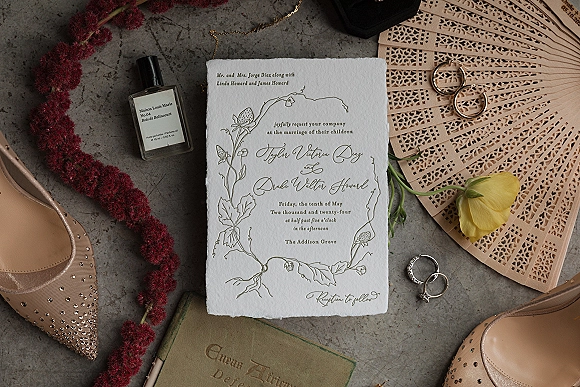 Mr. and Mrs. Jorge Diaz along with
Linda Howard and James Howard
joyfully request your company
at the marriage of their children
Taylor Victoria Diaz
&
Drake Walter Howard
Friday, the tenth of May
Two thousand and twenty-four
at half past five o'clock
in the afternoon
The Addison Grove
Reception to follow
Maison Louis Marie
No.04
Bois de Balincourt